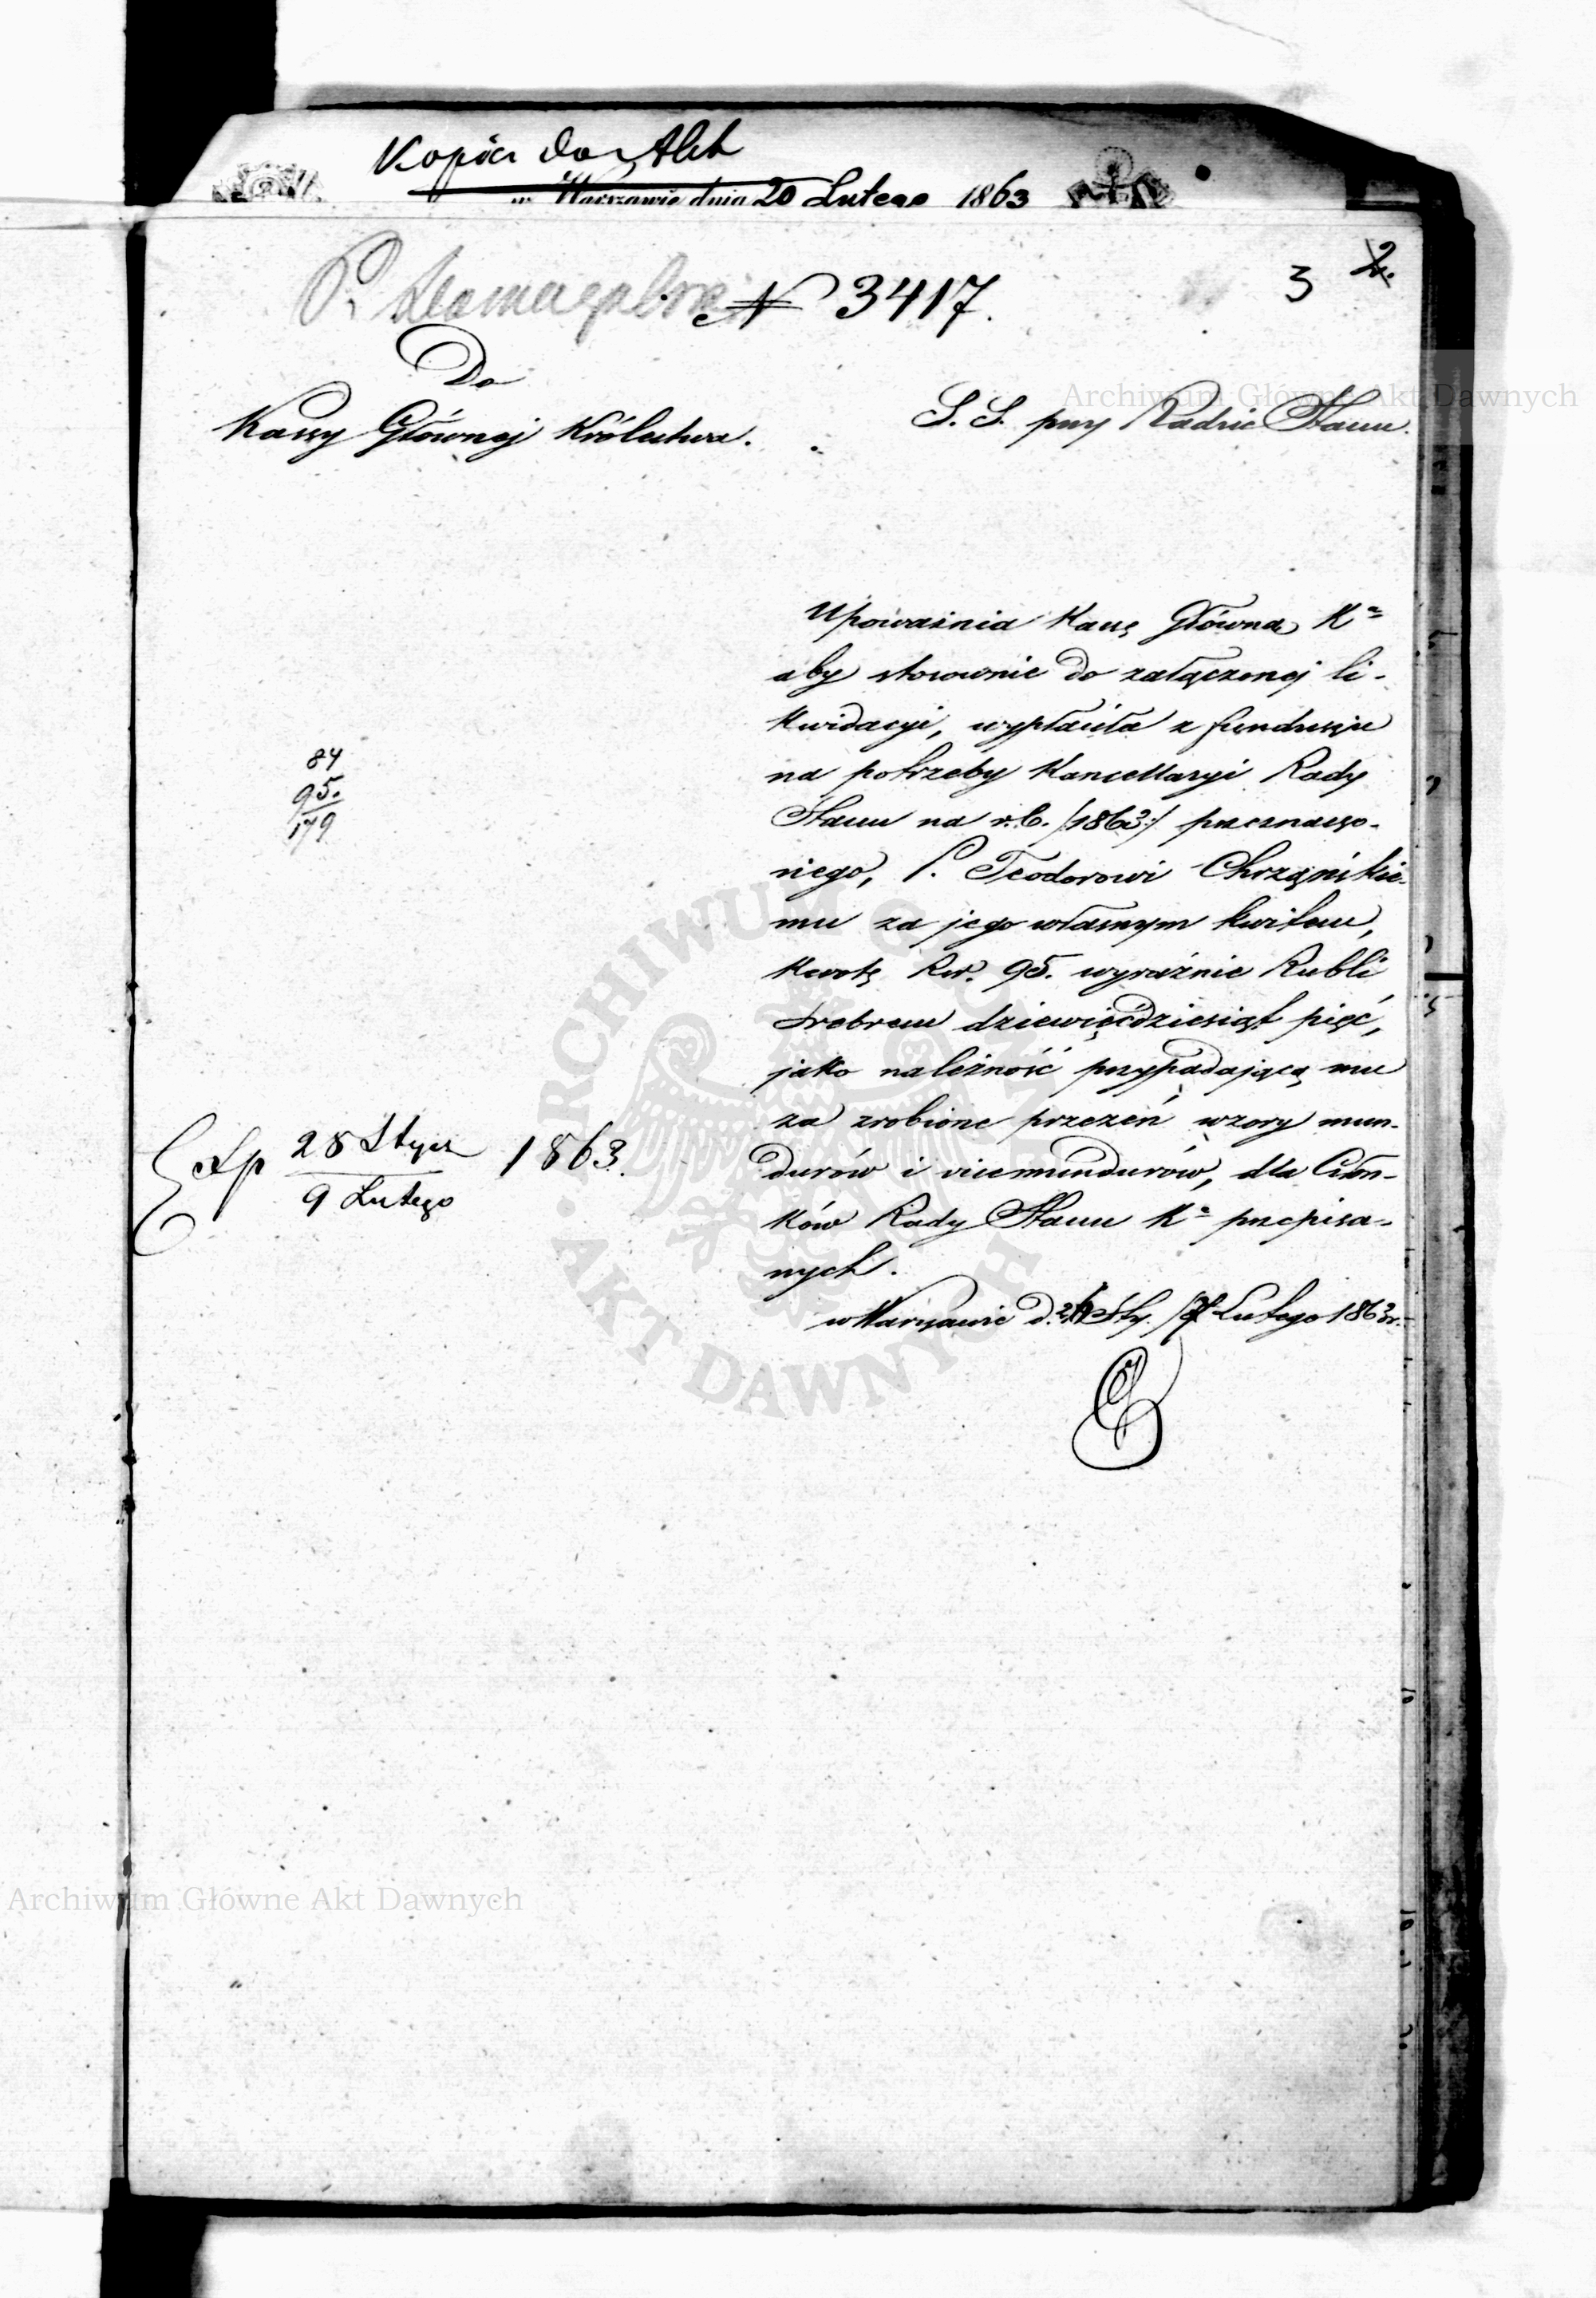 Kopia do Akt
w Warszawie dnia 20 Lutego 1863
3 2.
P. № 3417.
Do
Kassy Głównej Królestwa.
S. S. przy Radzie Stanu.
Upoważnia Kassę Główną Kᵃ
aby stosownie do załączonej li-
kwidacyi, wypłaciła z funduszu
na potrzeby Kancellaryi Rady
Stanu na r.b. /1863/ przeznaczo-
nego, P. Teodorowi Chrząńskie-
mu za jego własnym kwitem,
kwotę Rsr. 95. wyraźnie Rubli
srebrem dziewięćdziesiąt pięć,
jako należność przypadającą mu
za zrobione przezeń wzory mun-
durów i vicemundurów, dla Człon-
ków Rady Stanu Kᵃ przepisa-
nych.
w Warszawie d. Sty. / Lutego 1863 r.
84
95.
179
Exp 28 Stycz 1863.
9 Lutego
Archiwum Główne Akt Dawnych
ARCHIWUM GŁÓWNE
AKT DAWNYCH
Archiwum Główne Akt Dawnych